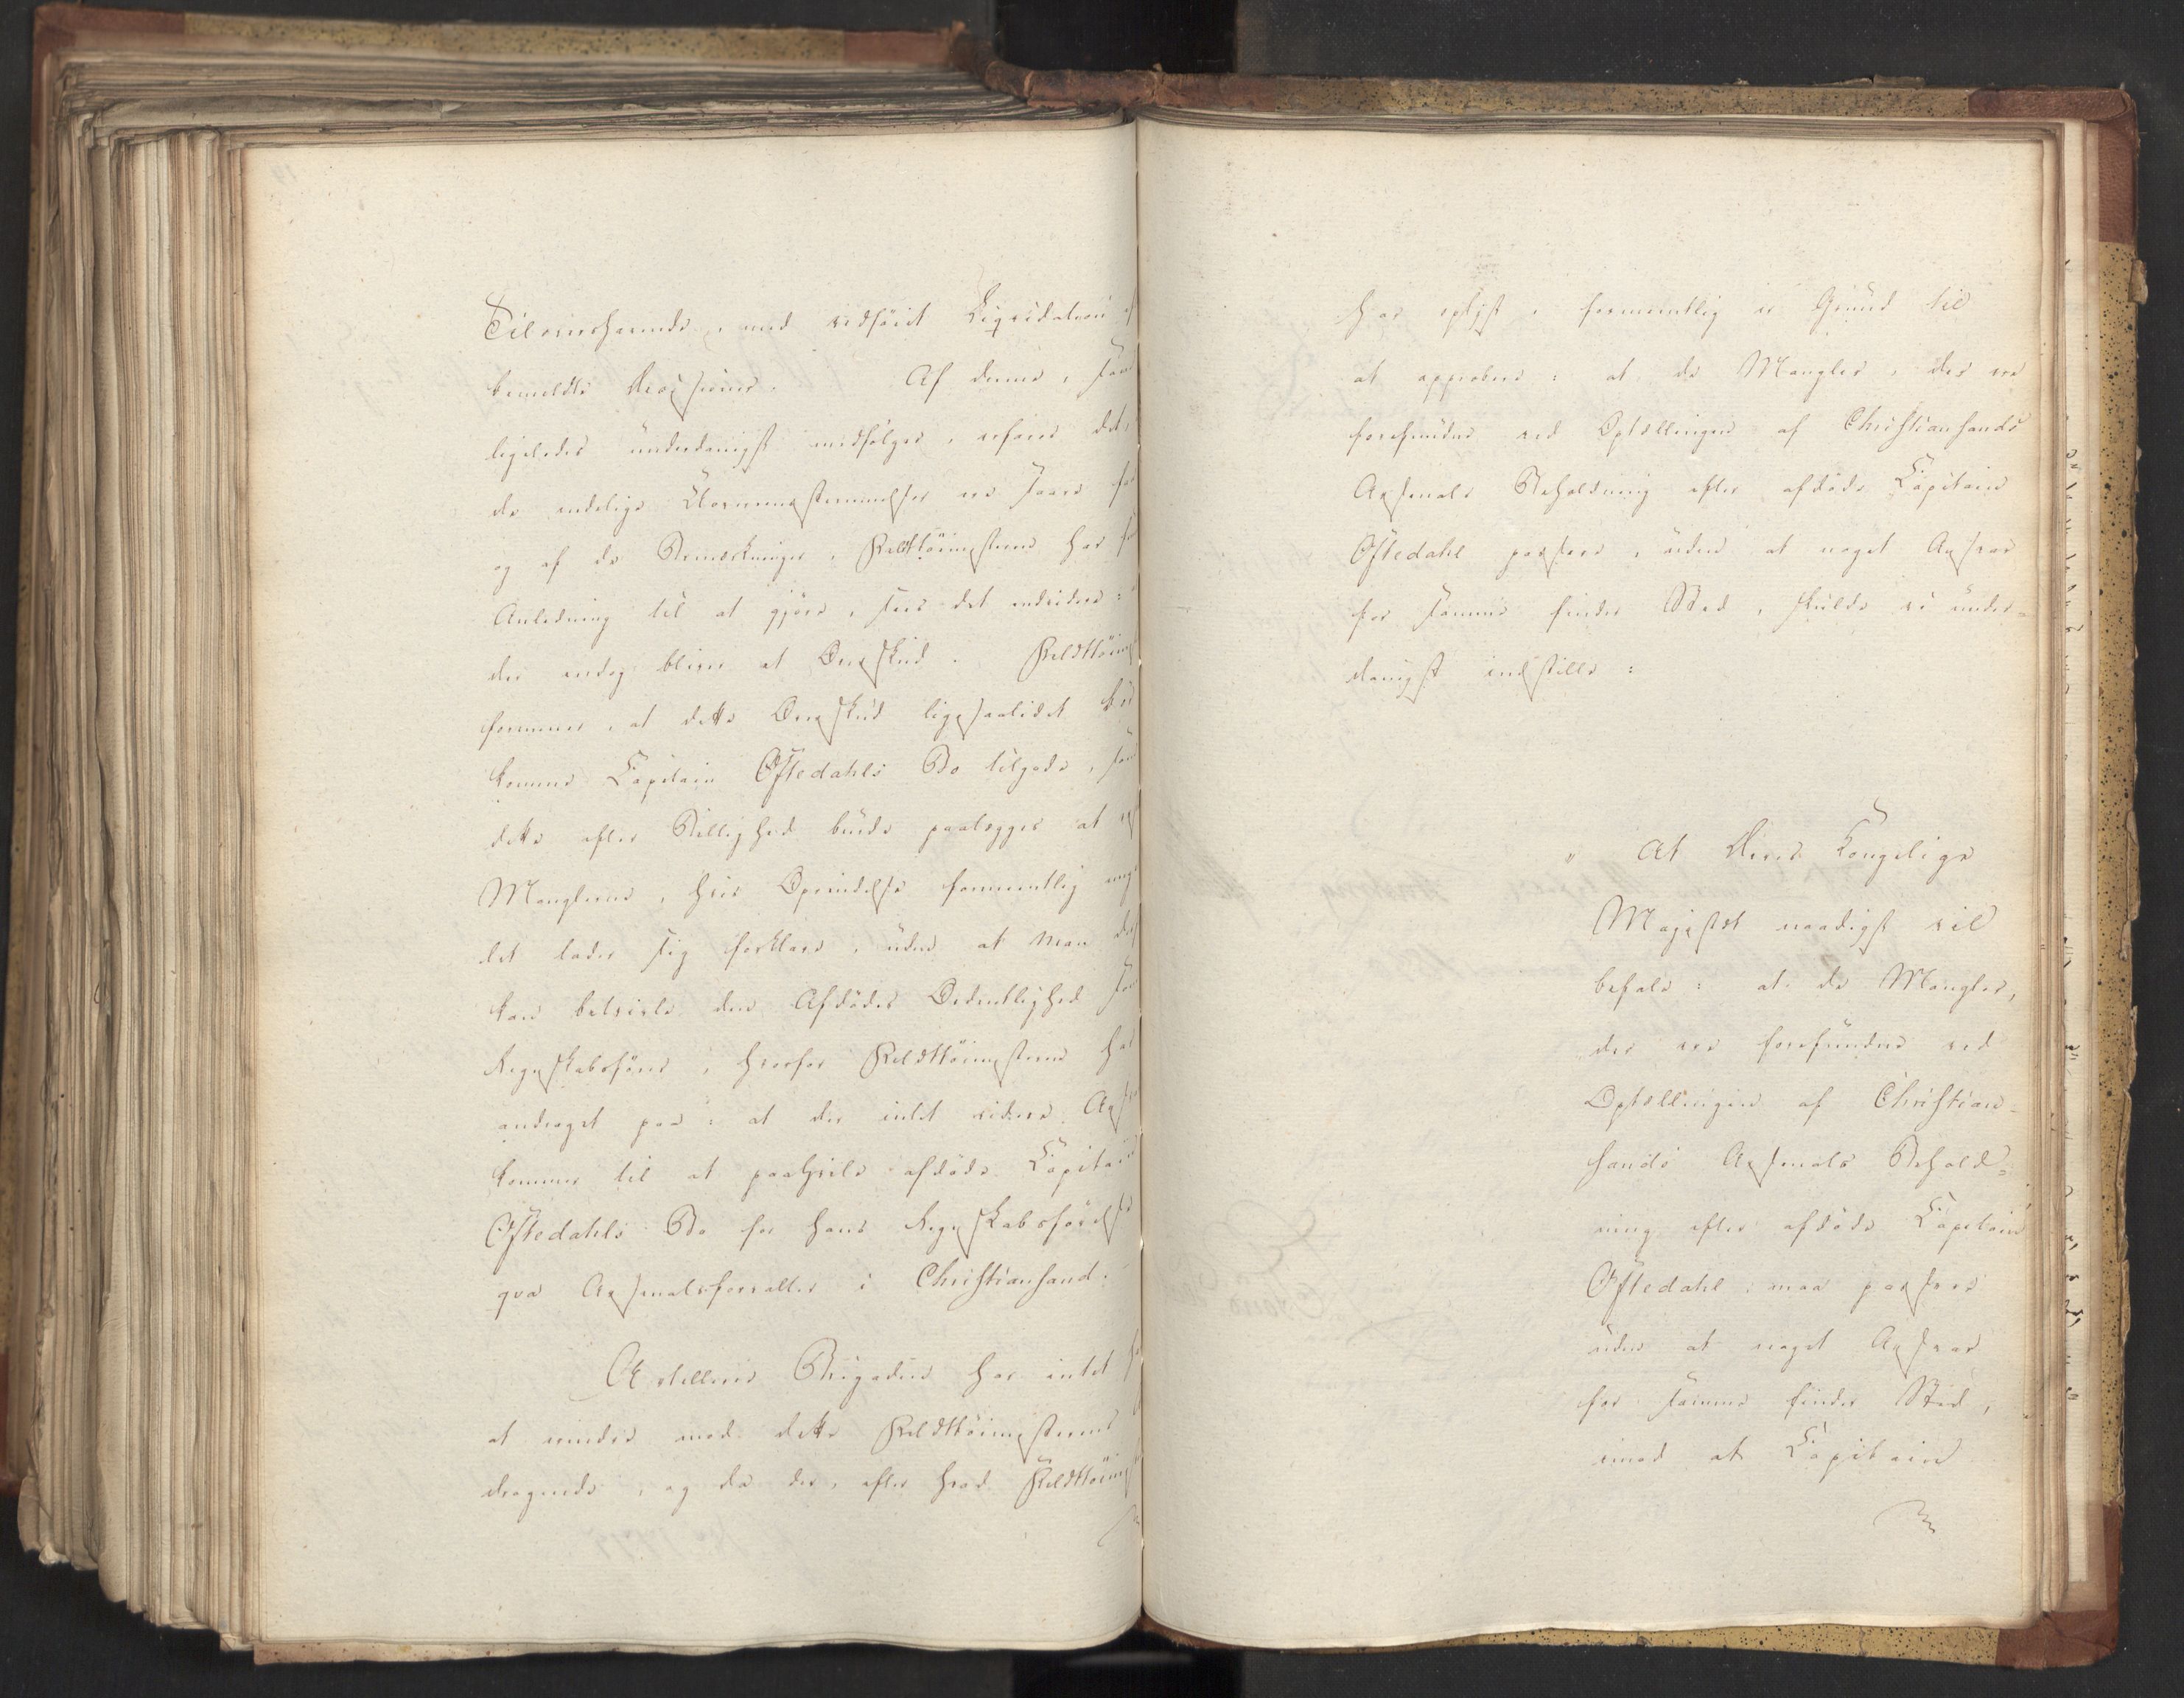 Tilovershavende, med vedføiet Liqvidation af
bemeldte Revisioner. Af denne, som
ligeledes underdanigst medfølger, erfares det,
de endelige Overeensstemmelser ere saare faa
og af de Bemærkninger, Feldttøimesteren har
Anledning til at gjøre, sees det endvidere:
der endog bliver et Overskud. Feldttøim
formener, at dette Overskud ligesaalidet bør
komme Capitain Oftedahls Bo tilgode, som
dette efter Billighed burde paalægges at er
Manglerne, hvis Oprindelse formeentlig meg
let lader sig forklare, uden at man der
kan betvivle den Afdødes Ordentlighed som
Regnskabsfører, hvorfor Feldttøimesteren har
andraget paa: at der intet videre Ansv
kommer til at paahvile afdøde Capitain
Oftedahls Bo for hans Regnskabsførelse
qva Arsenalsforvalter i Christiansand.
Artillerie Brigaden har intet
at erindre mod dette Feldttøimesterens
dragende, og da der, efter hvad Feldttøim
har oplyst, formeentlig er Grund til
at approbere: at de Mangler, der ere
forefundne ved Optællingen af Christiansands
Arsenals Beholdning efter afdøde Capitain
Oftedahl passere, uden at noget Ansvar
for samme finder Sted, skulde vi under-
danigst indstille:
" At Deres Kongelige
Majestæt naadigst vil
befale: at de Mangler,
der ere forefundne ved
Optællingen af Christian-
sands Arsenals Behold-
ning efter afdøde Capitain
Oftedahl, maa passere
uden at noget Ansvar
for samme finder Sted,
imod at Capitain